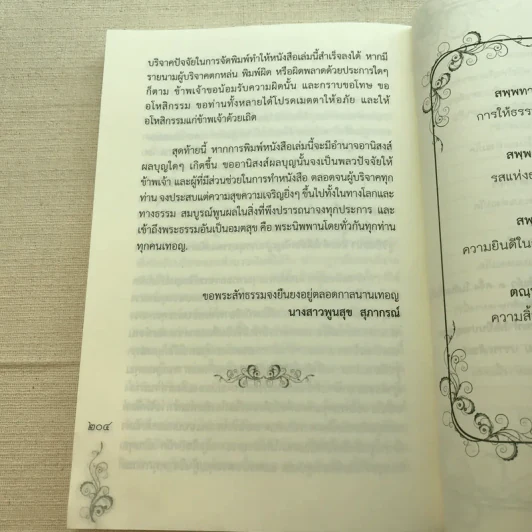 บริจาคปัจจัยในการจัดพิมพ์ทำให้หนังสือเล่มนี้สำเร็จลงได้ หากมี
รายนามผู้บริจาคตกหล่น พิมพ์ผิด หรือผิดพลาดด้วยประการใดๆ
ก็ตาม ข้าพเจ้าขอน้อมรับความผิดนั้น และกราบขอโทษ ขอ
อโหสิกรรม ขอท่านทั้งหลายได้โปรดเมตตาให้อภัย และให้
อโหสิกรรมแก่ข้าพเจ้าด้วยเถิด
สุดท้ายนี้ หากการพิมพ์หนังสือเล่มนี้จะมีอำนาจอานิสงส์
ผลบุญใดๆ เกิดขึ้น ขออานิสงส์ผลบุญนั้นจงเป็นพลวปัจจัยให้
ข้าพเจ้า และผู้ที่มีส่วนช่วยในการทำหนังสือ ตลอดจนผู้บริจาคทุก
ท่าน จงประสบแต่ความสุขความเจริญยิ่งๆ ขึ้นไปทั้งในทางโลกและ
ทางธรรม สมบูรณ์พูนผลในสิ่งที่พึงปรารถนาจงทุกประการ และ
เข้าถึงพระธรรมอันเป็นอมตสุข คือ พระนิพพานโดยทั่วกันทุกท่าน
ทุกคนเทอญ.
ขอพระสัทธรรมจงยืนยงอยู่ตลอดกาลนานเทอญ
นางสาวพูนสุข สุภากรณ์
๒๐๔
สพฺพทา
การให้ธรร
สพฺพ
รสแห่งธ
สพ
ความยินดีใน
ตณฺ
ความสิ้